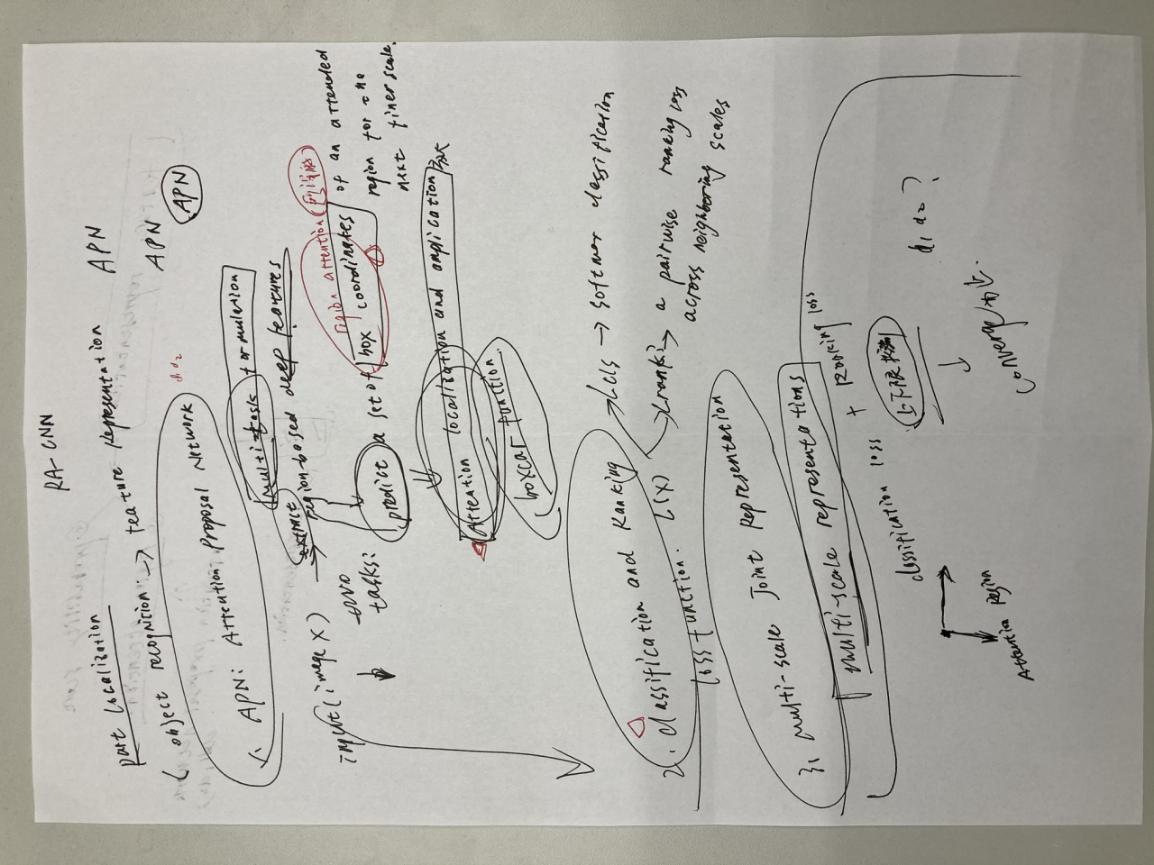 RA-CNN
part localization
object recognition → feature representation APN
APN
APN
1. APN: Attention Proposal Network d1 d2
multi-task formulation
input (image X) → extract region-based deep features
two tasks:
predict a set of box coordinates of an attended region for the next finer scale.
region attention
Attention localization and amplification
boxcar function
2. classification and Ranking → Lcls → softmax classification
loss function. L(X) → Lrank → a pairwise ranking loss
across neighboring scales
3. multi-scale Joint Representation
multi-scale representations
classification loss + ranking loss
上下限
d1 d2?
Attention Region
↓
converge